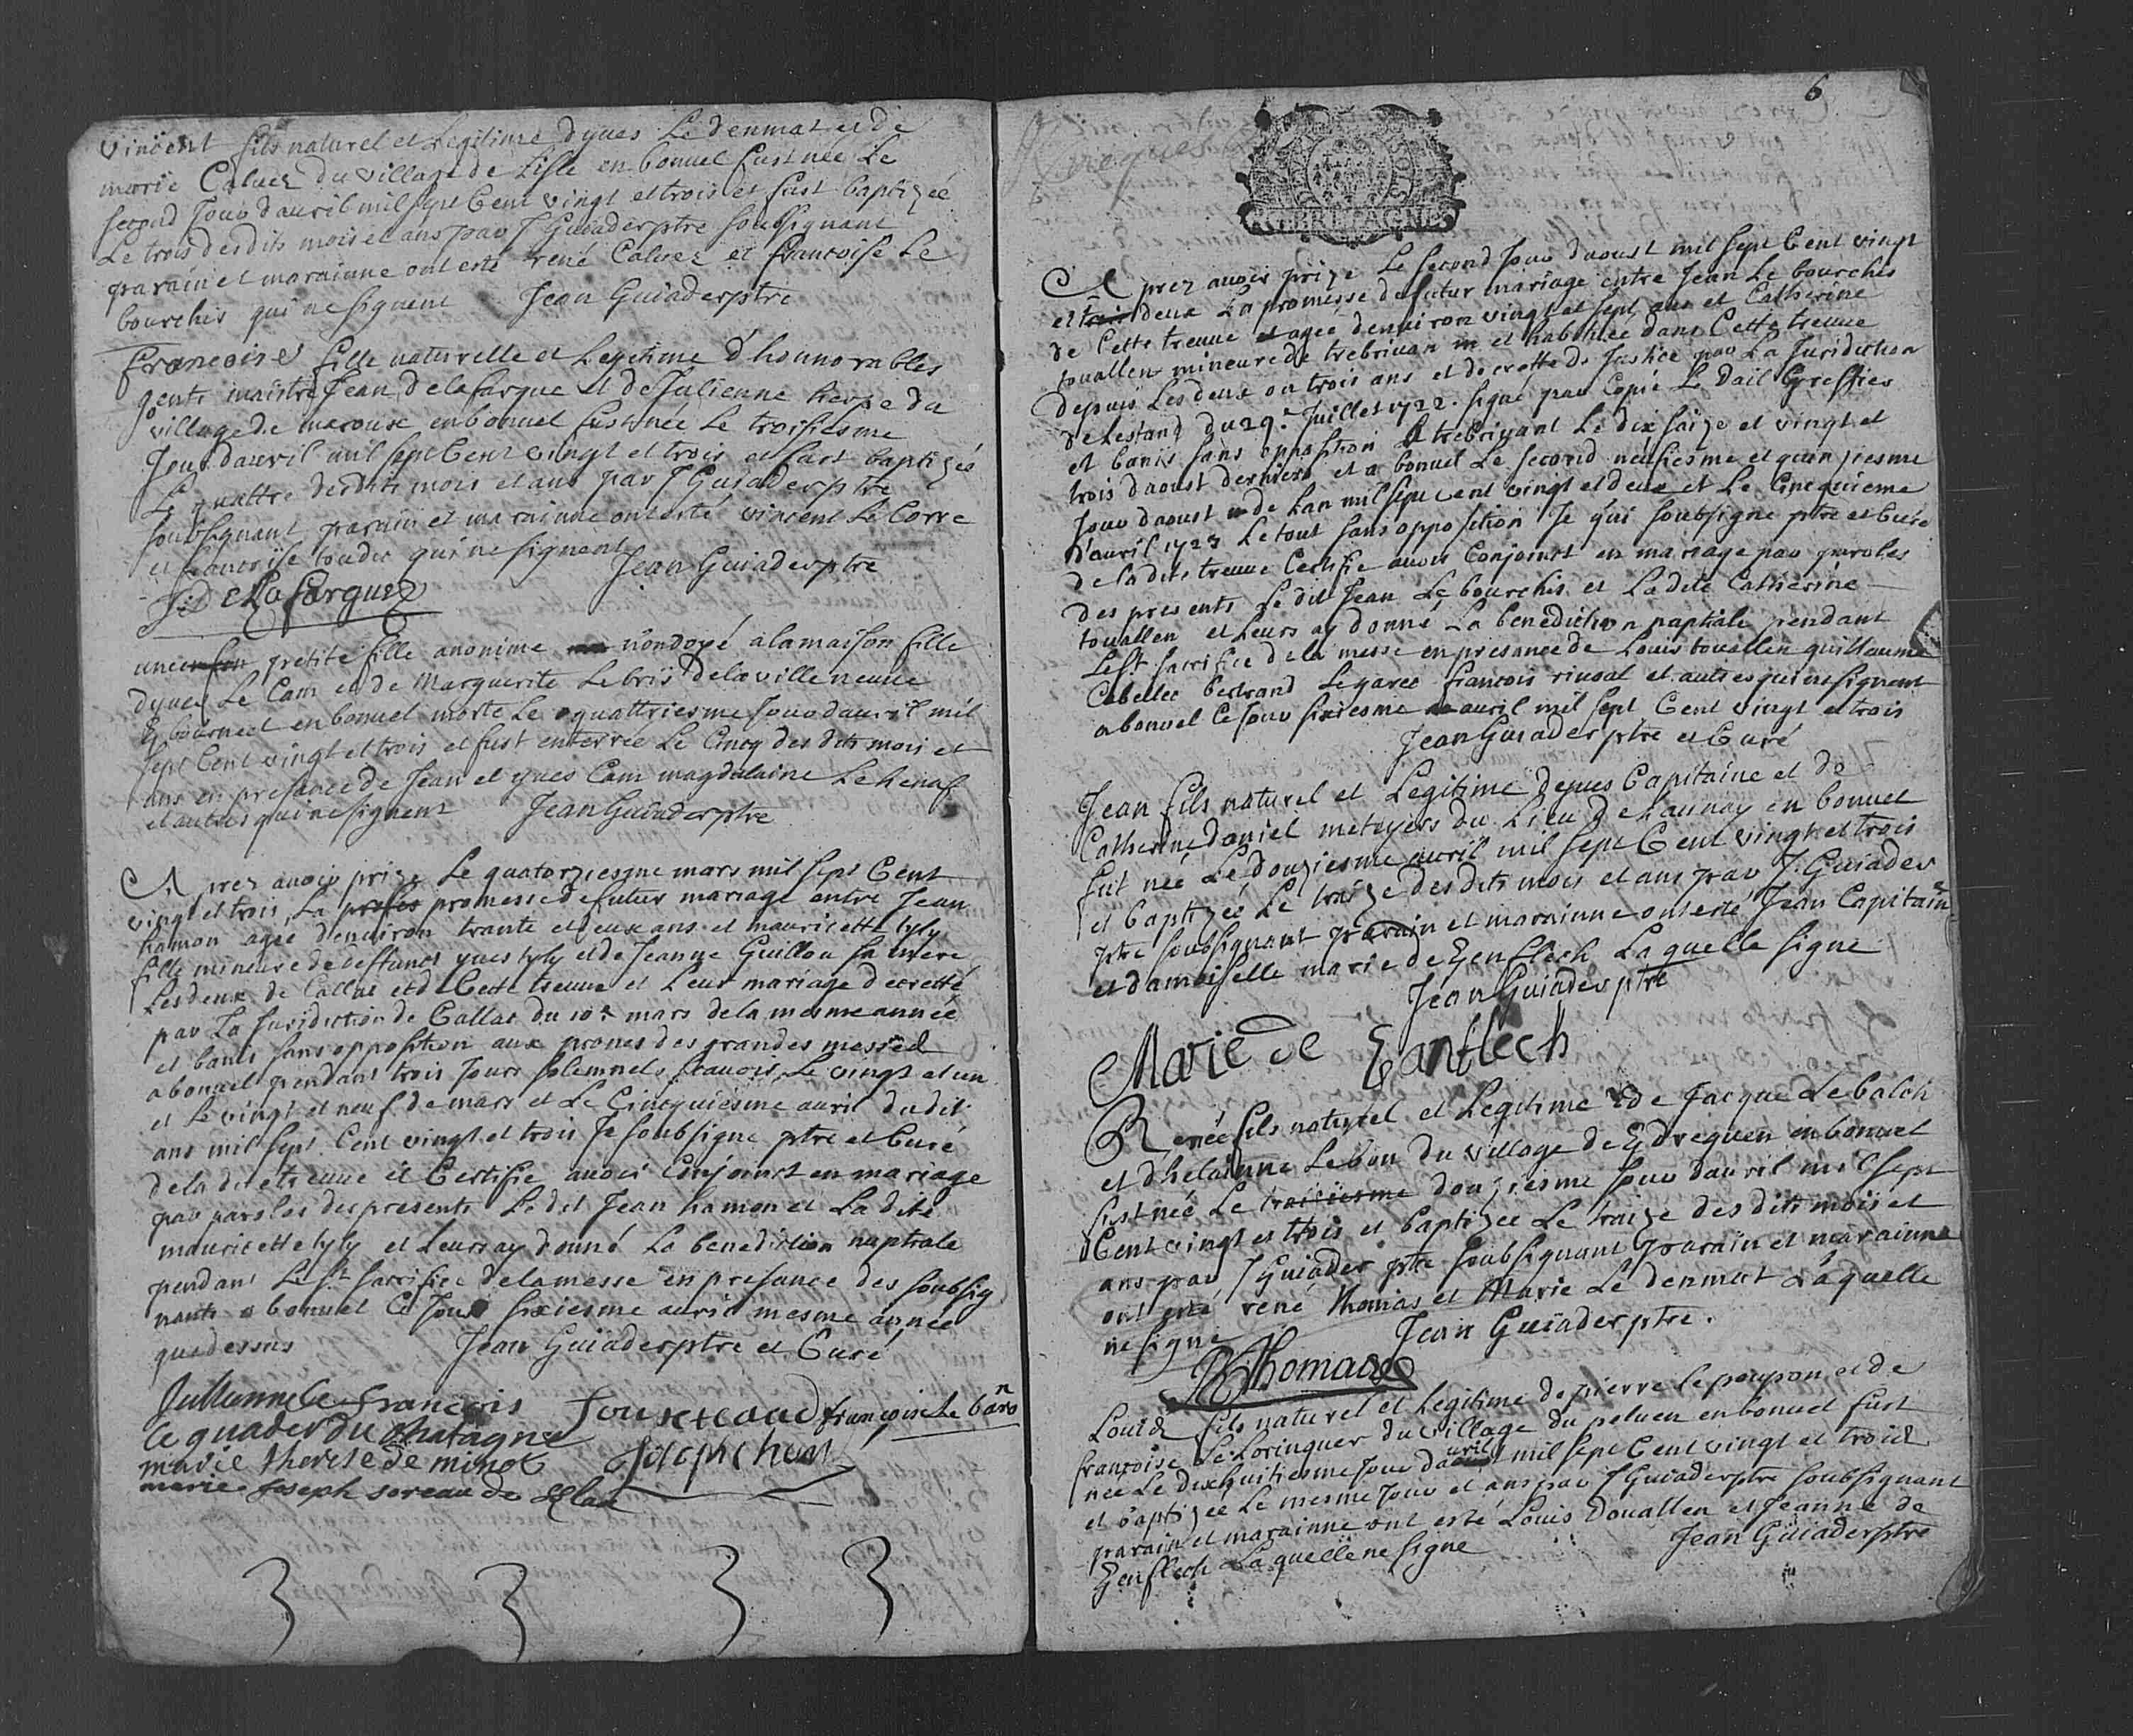 Vincent fils naturel et Legitime dyves Le denmat et de
marie Calvez du village de Lisle en bonuel fust née Le
second Jour dauril mil sept Cent vingt et trois et fust baptizée
Le trois desdits mois et ans par J Guiader ptre soubsignant
parain et marainne ont esté rené Calvez et francoise Le
bourchis qui ne signent Jean Guiader ptre
francoise fille naturelle et Legitime d'honnorables
gents maistre Jean de lafargue et de Julienne herve du
village de marous en bonuel fust née Le troisiesme
Jour dauril mil sept Cent vingt et trois et fust baptizée
Le quattre desdits mois et ans par J Guiader ptre
soubsignant parain et marainne ont esté vincent Le Corre
et francoise toudic qui ne signent
Jean Guiader ptre
J: De La fargue
une petite fille anonime nondoyé a la maison fille
dyves Le Cam et de Marguerite Le bris de la ville neuve
en bonuel morte Le quattriesme Jour dauril mil
sept Cent vingt et trois et fust enterrée Le Cincq des dits mois et
ans en presance de Jean et yves Cam magdelaine Le henaf
et autres qui ne signent Jean Guiader ptre
Aprez avoir prize Le quatorziesme mars mil sept Cent
vingt et trois, La promesse de futur mariage entre Jean
hamon agée d'environ trante et deux ans et mauricette lyly
fille mineure de deffunct yves lyly et de Jeanne Guillou sa mere
Les deux de Callac et de Cette treuve et Leur mariage decretté
par La Jurisdiction de Callac du 10e mars de la mesme année
et banis sans opposition aux prones des grandes messes
a bonuel pendant trois Jours solemnels scavoir Le vingt et un
et Le vingt et neuf de mars et Le Cincquiesme auril dudit
ans mil sept Cent vingt et trois Je soubsigne ptre et Curé
de la dite treuve et Certifie avoir Conjoinct en mariage
par parolles des presents Le dit Jean hamon et La dite
mauricette lyly et Leurs ay donné La benediction naptiale
pendant Le st sacrifice de la messe en presance des soubsig
nants a bonuel Ce Jour sixiesme auril mesme année
que dessus Jean Guiader ptre et Curé
Jullienne Le francois
francoise Le baron
Ce quader du Chatagne
marie therese de minot
marie Joseph soreau de
6
BRETAGNE
Aprez avoir prize Le second Jour daoust mil sept Cent vingt
et trois deux La promesse de futur mariage entre Jean Le bourchis
de Cette treuve et agée denviron vingt et sept ans et Catherine
touallen mineure de trebrivan et habituée dans Cette treuve
depuis Les deux ou trois ans et decretté de Justice par La Jurisdiction
de Lestang du 29e Juillet 1722. signé par Copie Le Dail Greffier
et banis sans opposition A trebrivant Le dix saize et vingt et
trois daoust derniers et a bonuel Le second neufiesme et quinziesme
Jour daoust de Lan mil sept cent vingt et deux et Le Cincquieme
d'auril 1723 Le tout sans opposition Je qui soubsigne ptre et Curé
de la dite treuve Certifie avoir Conjoinct en mariage par paroles
des presents Le dit Jean Le bourchis et La dite Catherine
touallen et Leurs ay donné La benediction naptiale pendant
Le st sacrifice de la messe en presance de Louis touallen guillaume
Cabellec bertrand Le garec francois rivoal et autres qui ne signent
a bonuel Ce Jour sixiesme auril mil sept Cent vingt et trois
Jean Guiader ptre et Curé
Jean fils naturel et Legitime dyves Capitaine et de
Catherine daniel metayers du Lieu de Launay en bonuel
fut née Le douziesme auril mil sept Cent vingt et trois
et baptizée Le traize des dits mois et ans par J. Guiader
ptre soubsignant parain et marainne ont esté Jean Capitaine
et damoiselle marie de Kenflech Laquelle signe
Jean Guiader ptre
Marie de Kanflech
Renée fils naturel et Legitime de Jacque Le balch
et d'helainne Le bon du village de Kdreguen en bonuel
fust née Le traiziesme douziesme Jour dauril mil sept
Cent vingt et trois et baptizée Le traize des dits mois et
ans par J Guiader ptre soubsignant parain et marainne
ont esté rené Thomas et Marie Le denmat Laquelle
ne signe Jean Guiader ptre.
R Thomas
Louis fils naturel et Legitime de pierre Le poupon et de
francoise Le Lorinquer du village du peluen en bonuel fust
née Le dixhuitiesme Jour dauril mil sept Cent vingt et trois
et baptizée Le mesme Jour et ans par J Guiader ptre soubsignant
parain et marainne ont esté Louis Douallen et Jeanne de
Kenflech Laquelle ne signe Jean Guiader ptre